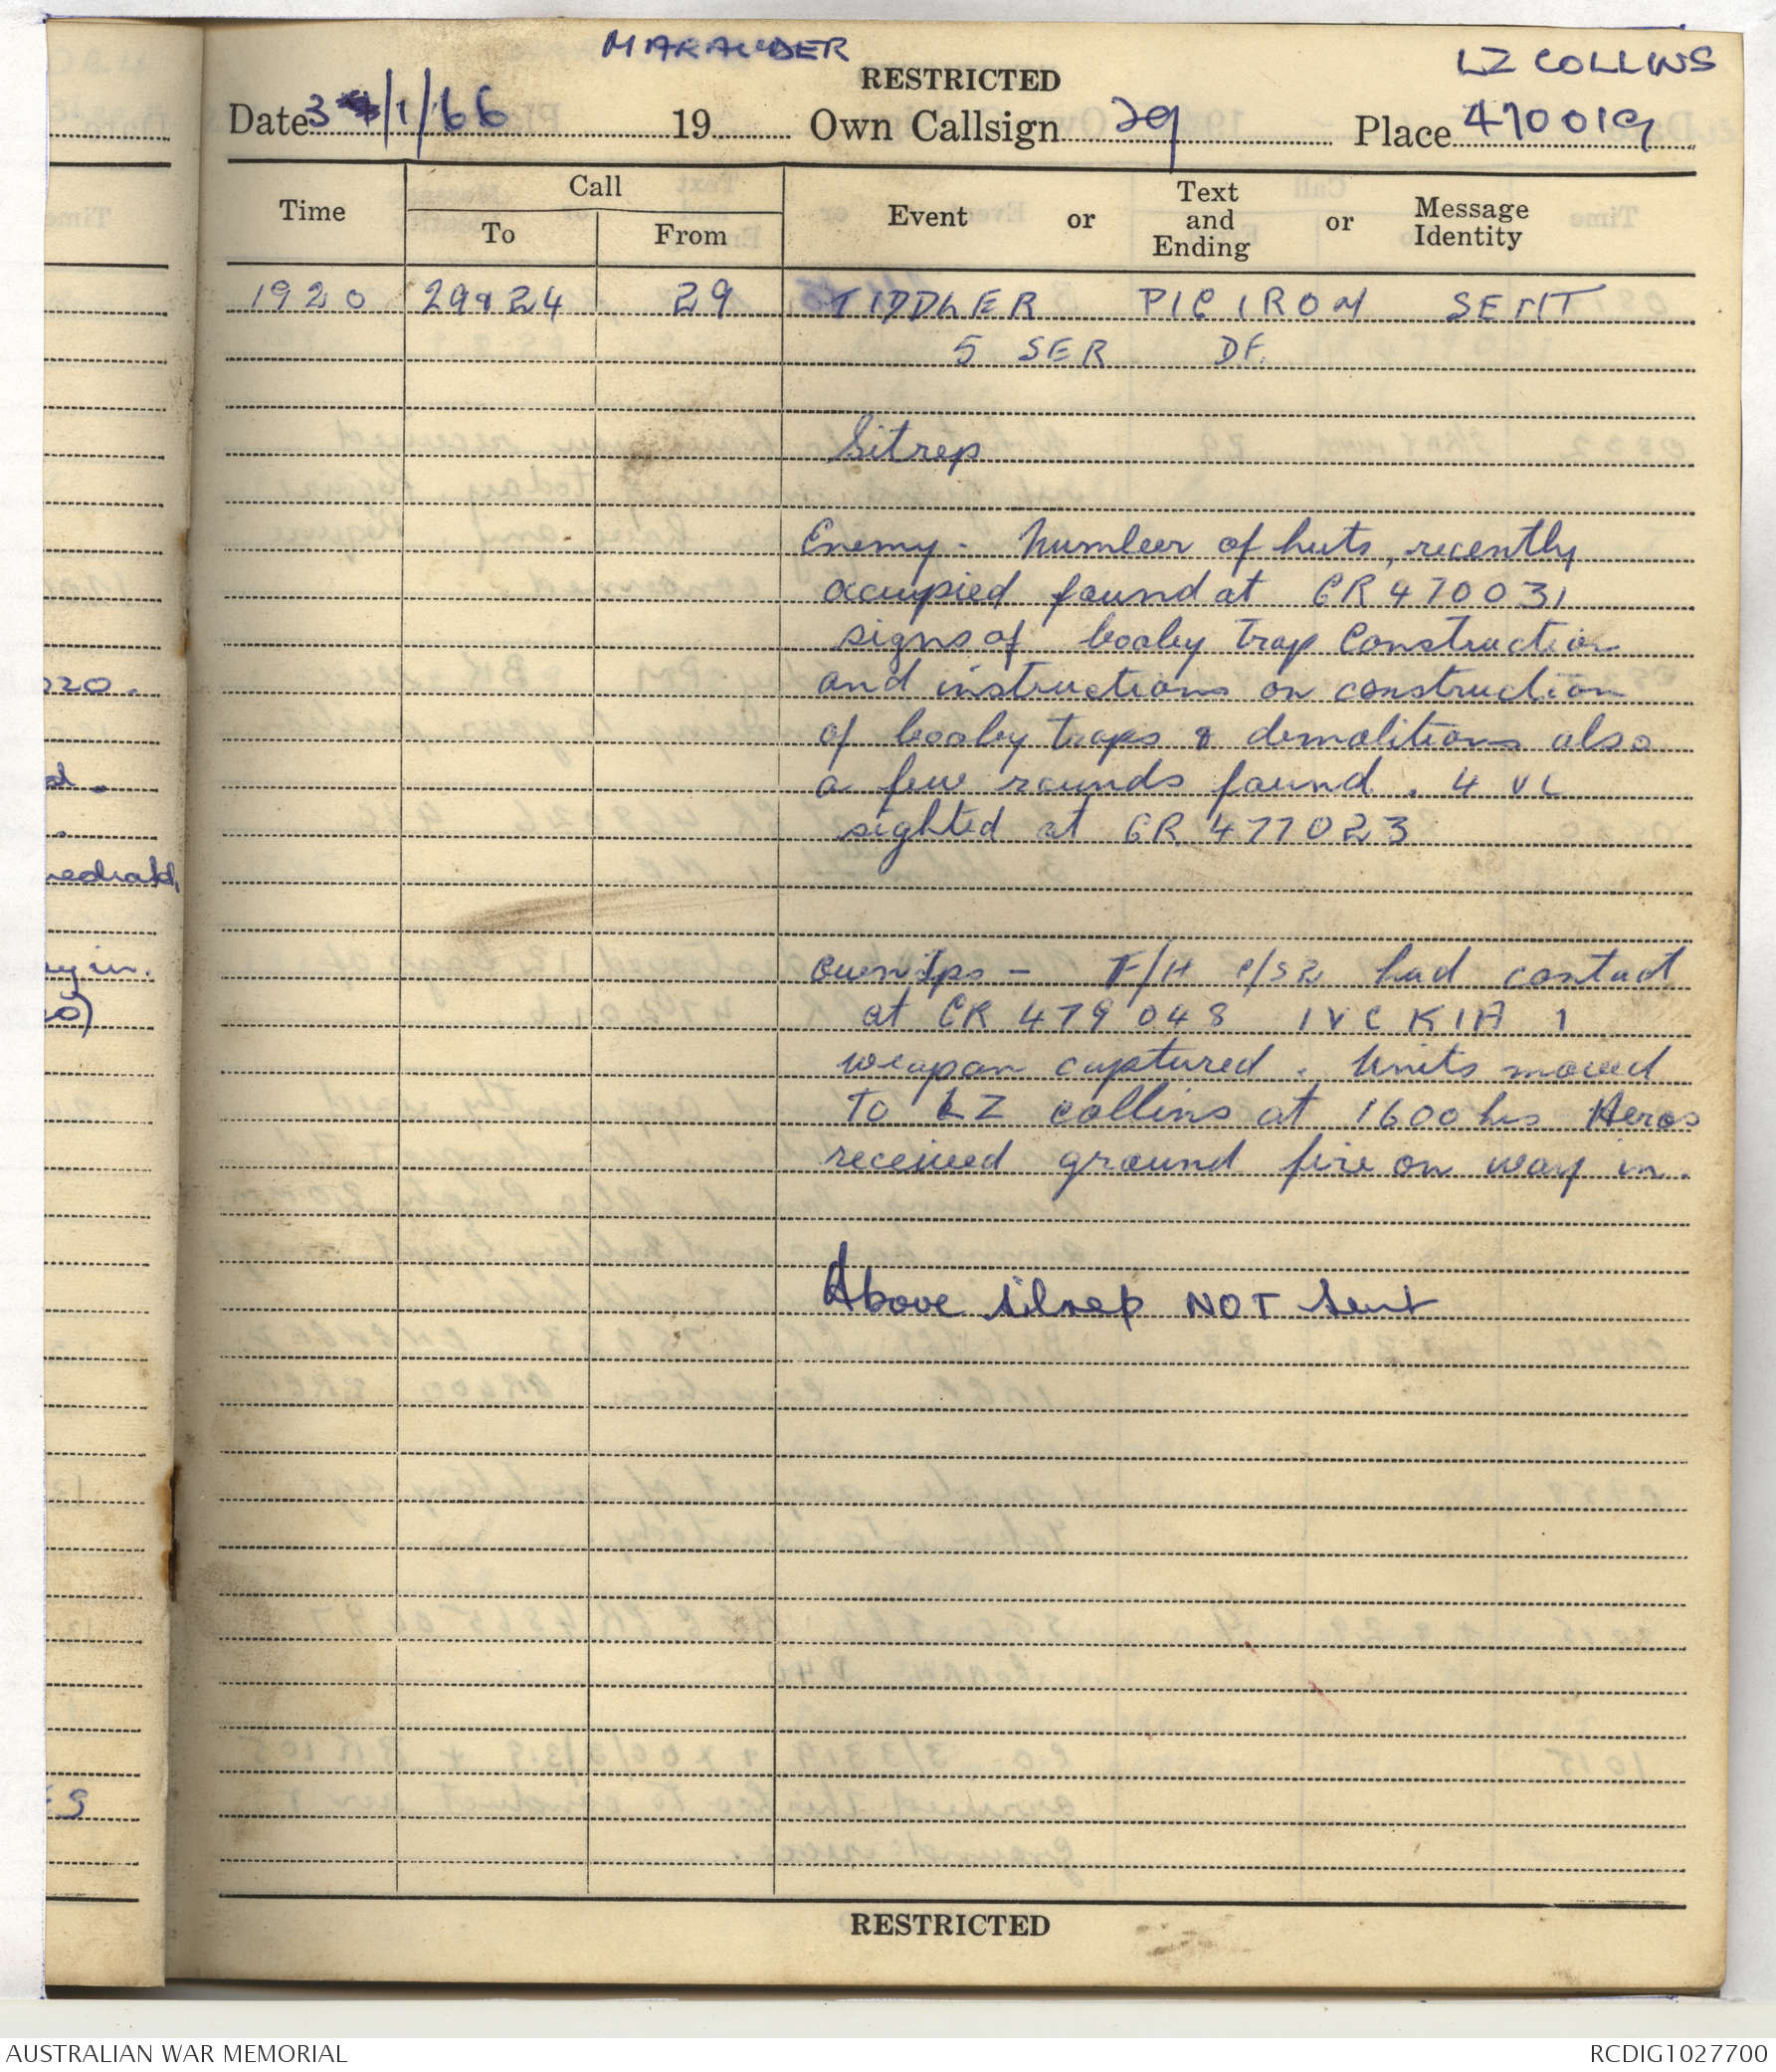 MARAUDER
RESTRICTED
LZ COLLINS
Date 3 /1/66 19 Own Callsign 29 Place 470019
Time Call To From Event or Text and Ending or Message Identity
1920 29 & 24 29 TIDDLER PIG IRON SENT
5 SER DF.
Sitrep
Enemy - Number of huts, recently
occupied found at GR 470031
signs of booby trap construction
and instructions on construction
of booby traps & demolitions also
a few rounds found. 4 VC
sighted at GR 477023
Own tps - F/H c/s 2 had contact
at GR 479048 1 VC KIA 1
weapon captured. Units moved
To LZ Collins at 1600 hrs Aeros
received ground fire on way in.
Above sitrep NOT sent
RESTRICTED
020.
yin.
AUSTRALIAN WAR MEMORIAL
RCDIG1027700